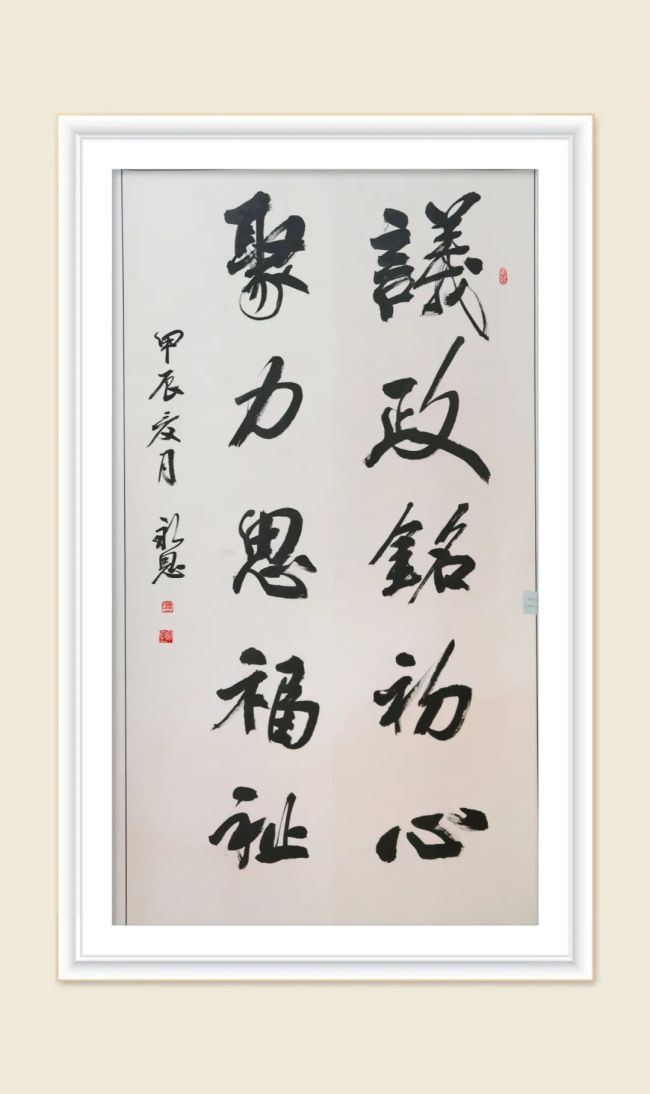 議政銘初心
聚力思福祉
甲辰夏月
永恩